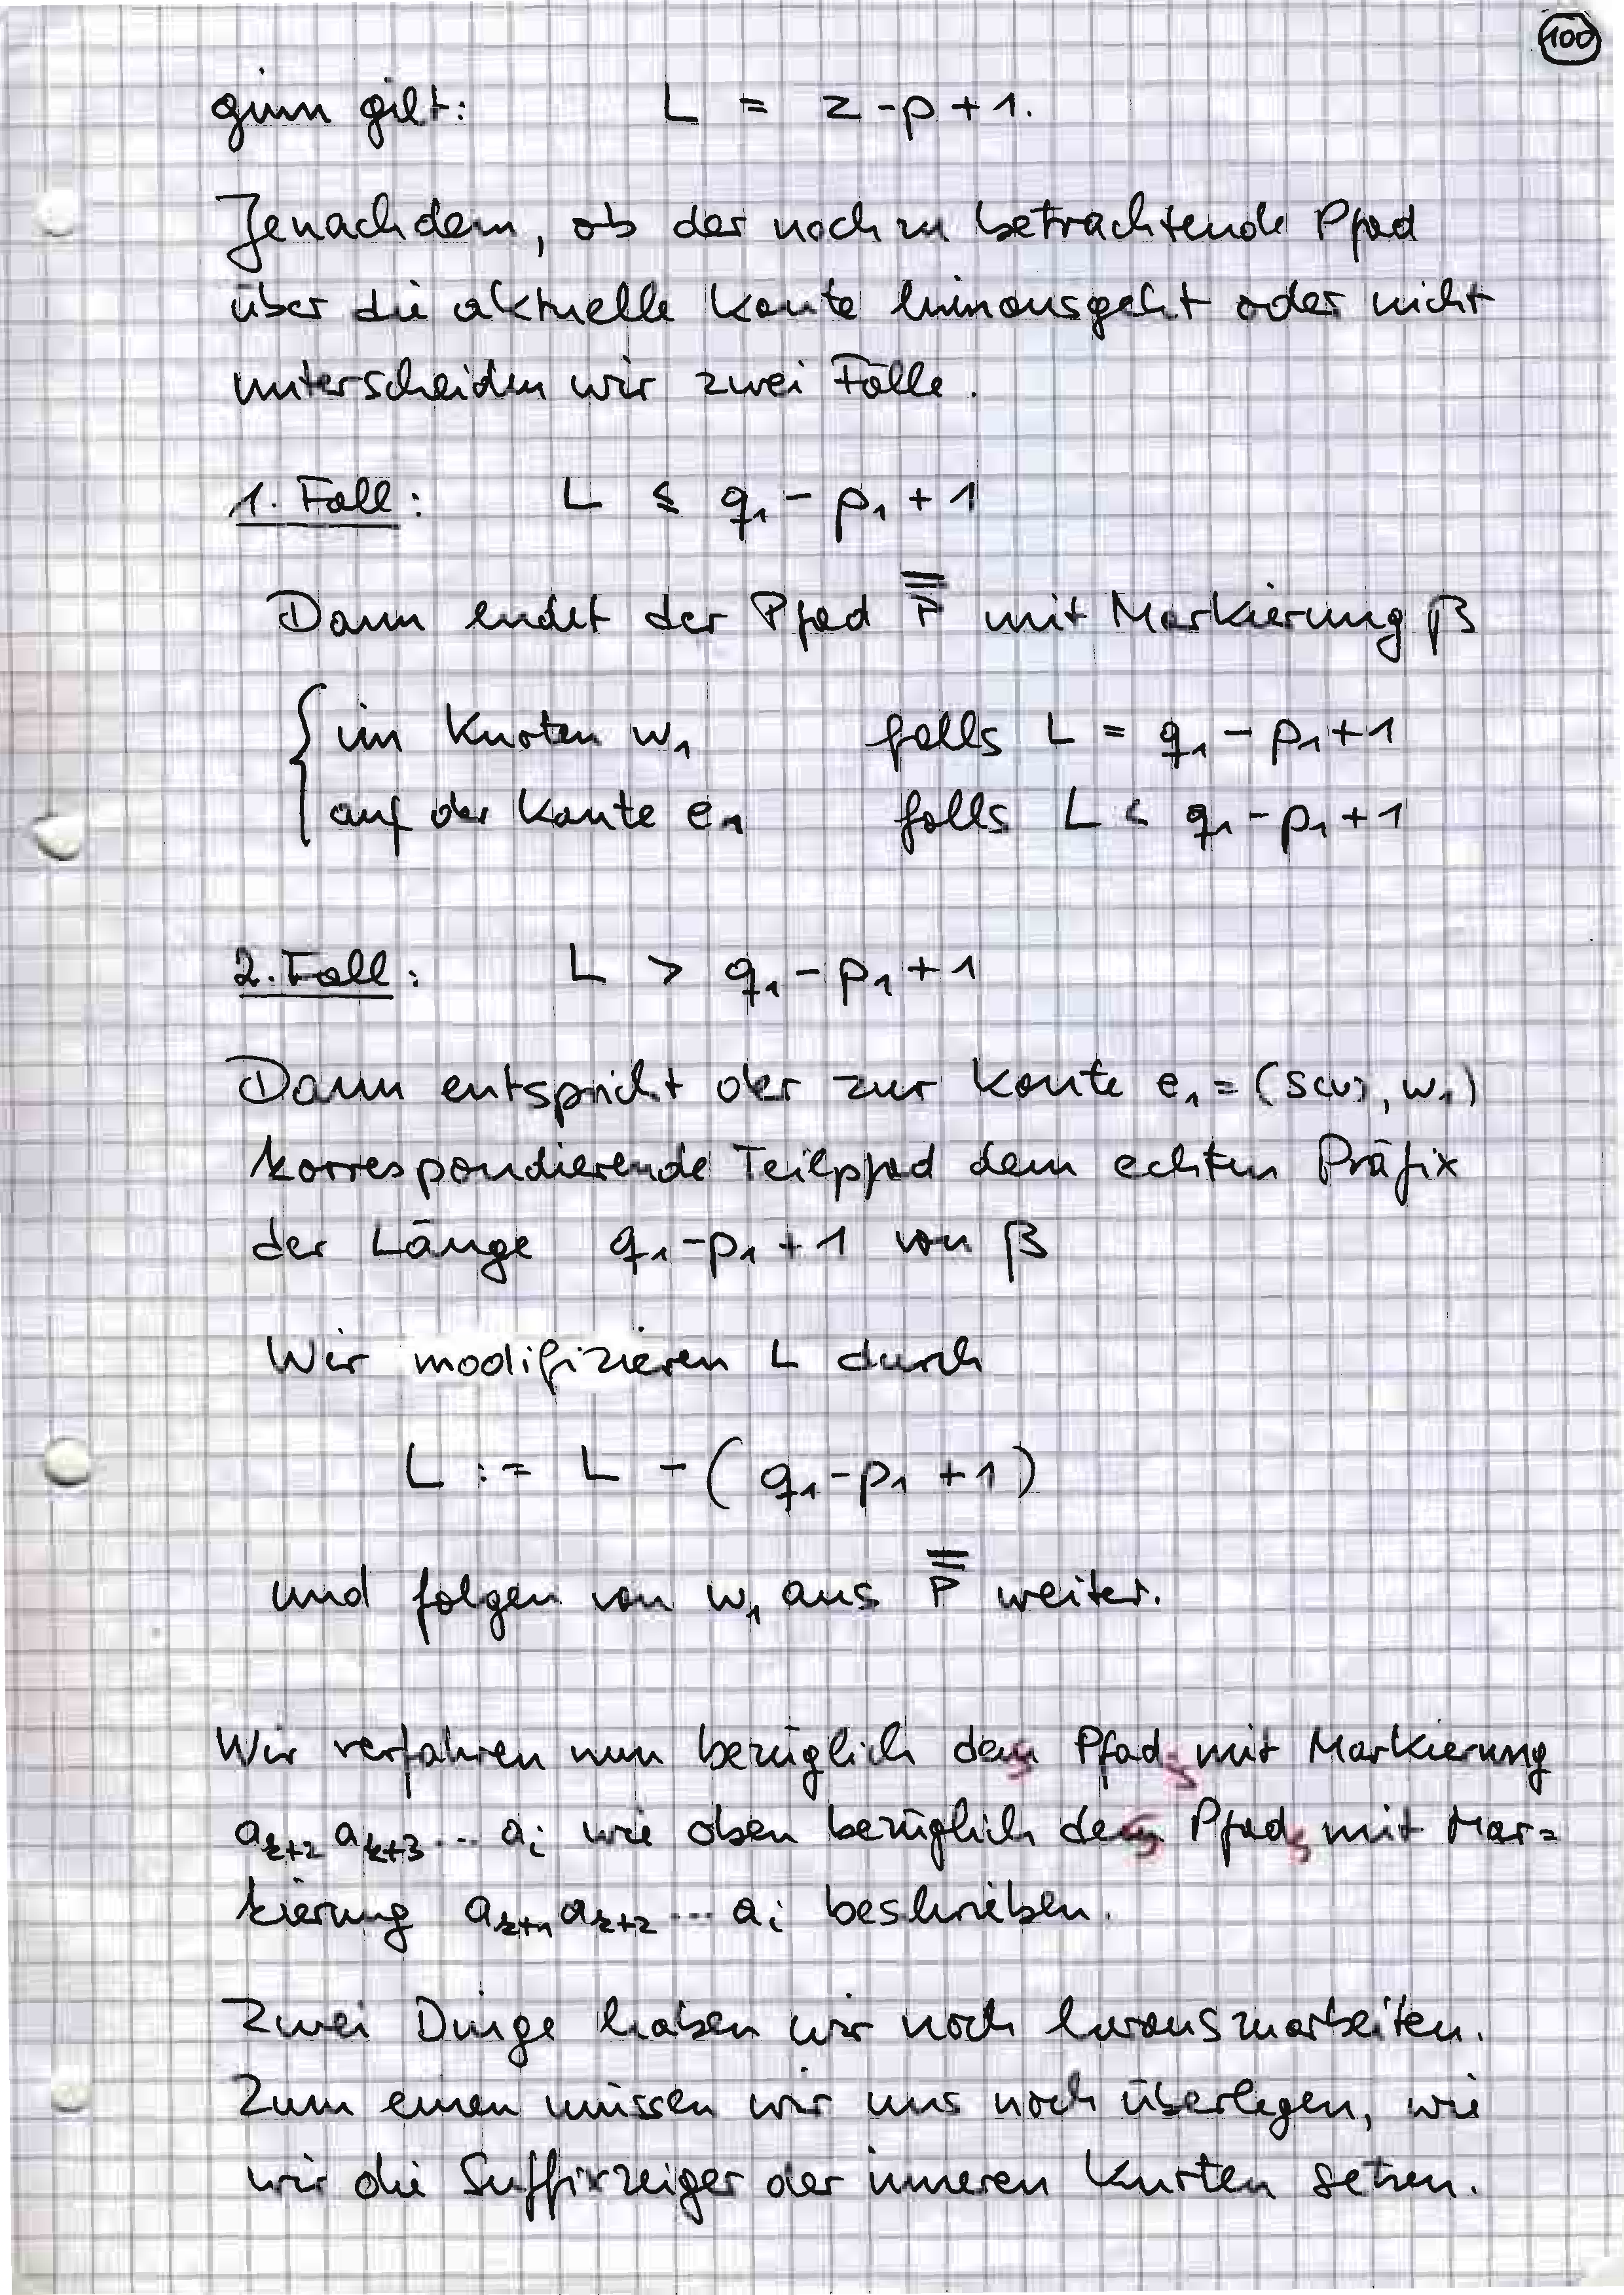 100
ginn gilt: L = z - p + 1.
Jenachdem, ob der noch zu betrachtende Pfad
über die aktuelle Kante hinausgeht oder nicht
unterscheiden wir zwei Fälle.
1. Fall: L ≤ q₁ - p₁ + 1
Dann endet der Pfad P̿ mit Markierung β
{ im Knoten w₁ falls L = q₁ - p₁ + 1
auf der Kante e₁ falls L < q₁ - p₁ + 1
2. Fall: L > q₁ - p₁ + 1
Dann entspricht der zur Kante e₁ = (s(v), w₁)
korrespondierende Teilpfad dem echten Präfix
der Länge q₁ - p₁ + 1 von β
Wir modifizieren L durch
L := L - (q₁ - p₁ + 1)
und folgen von w₁ aus P̿ weiter.
Wir verfahren nun bezüglich des Pfads mit Markierung
aₖ₊₂ aₖ₊₃ ... aᵢ wie oben bezüglich des Pfads mit Mar=
kierung aₖ₊₁ aₖ₊₂ ... aᵢ beschrieben.
Zwei Dinge haben wir noch herauszuarbeiten.
Zum einen müssen wir uns noch überlegen, wie
wir die Suffixzeiger der inneren Knoten setzen.